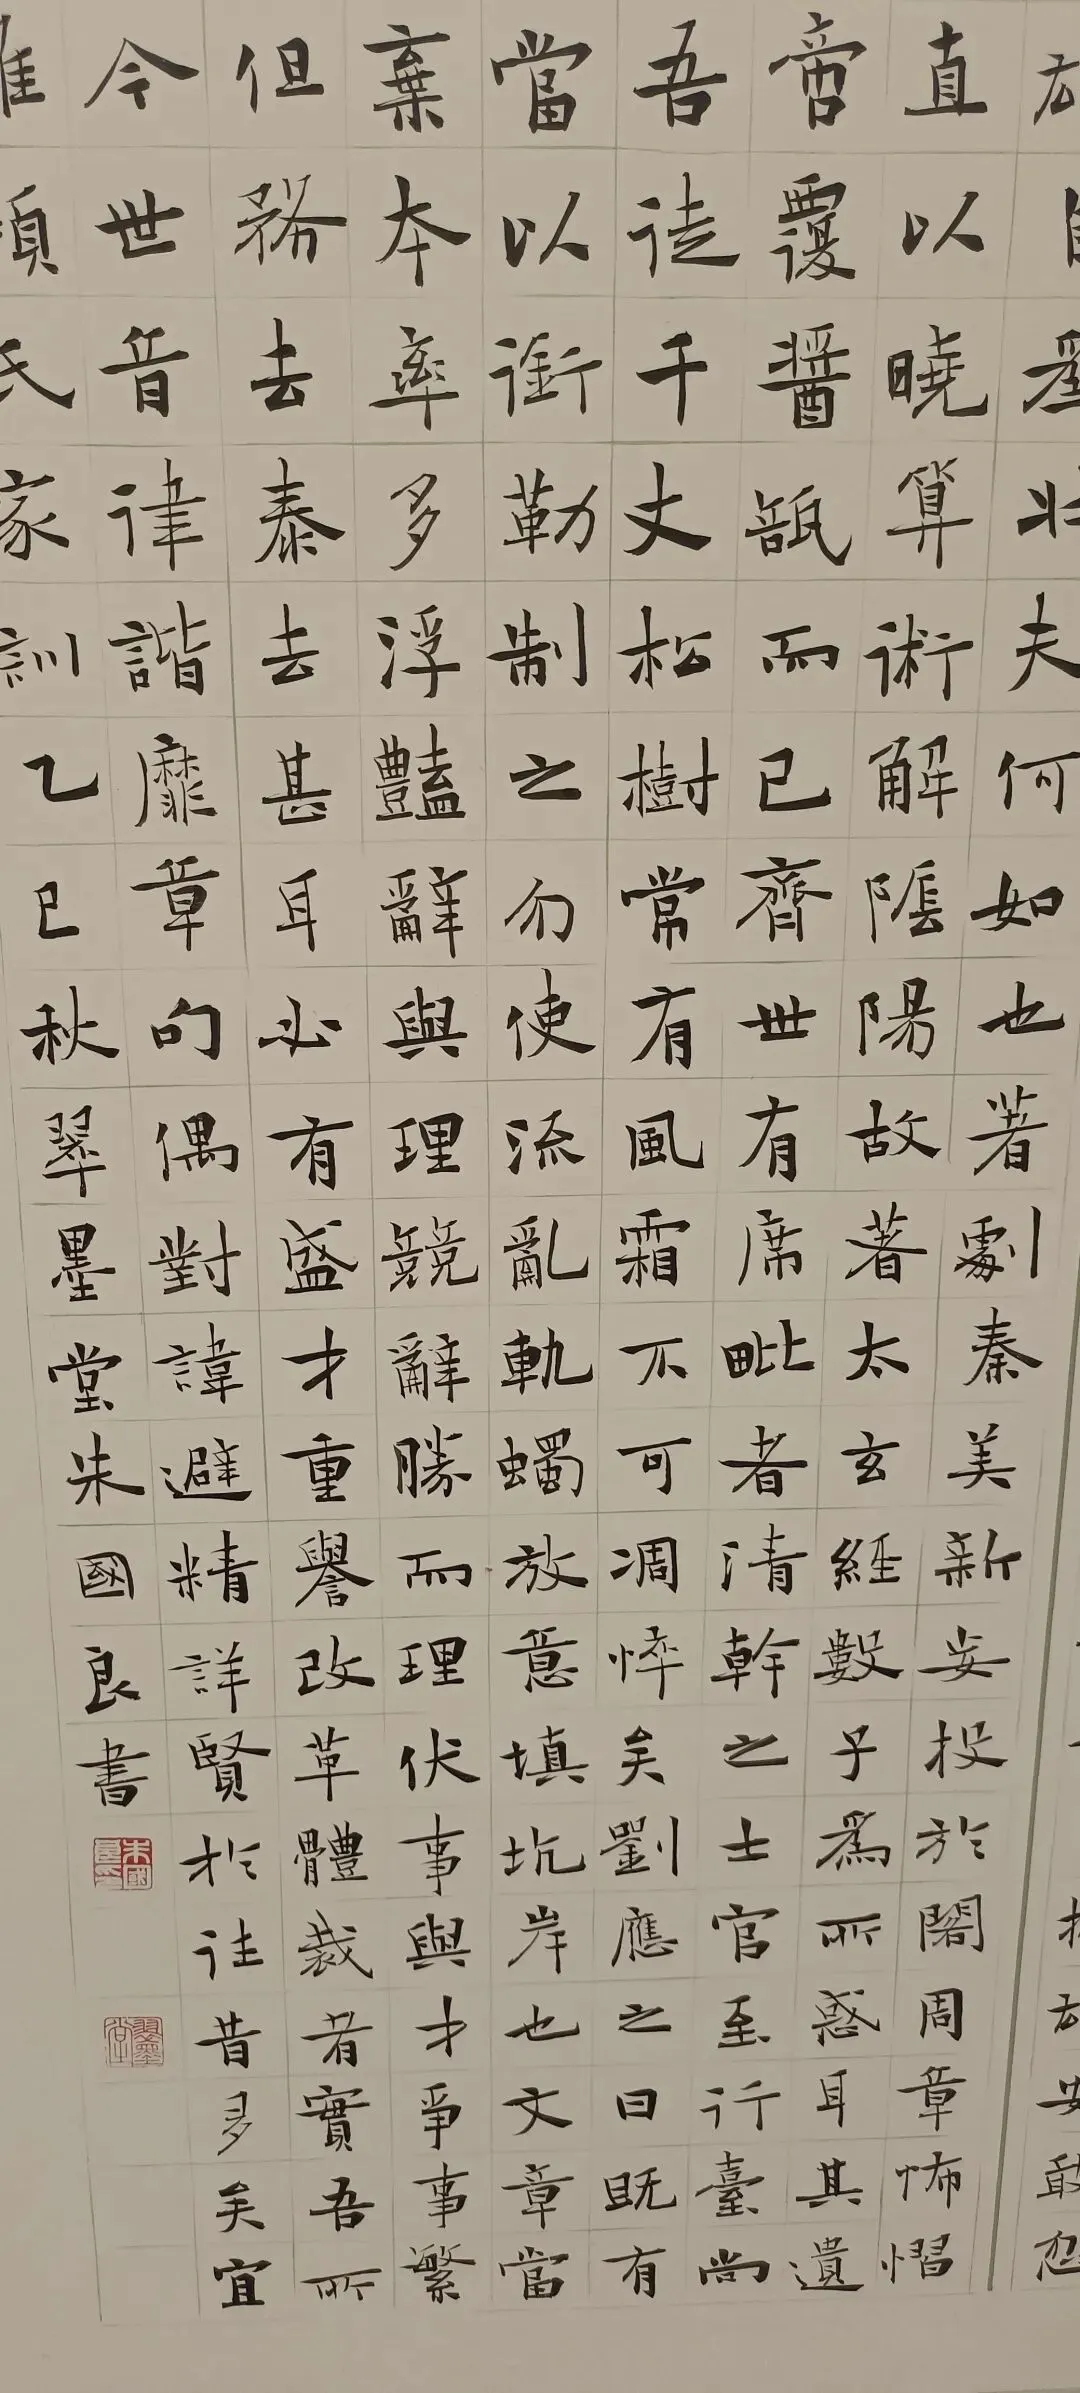 自爲壯夫何如也著劇秦美新妄投於閣周章怖慴
直以曉算術解陰陽故著太玄經數子爲所惑耳其遺
啻覆醬瓿而已齊世有席毗者清幹之士官至行臺尚
吾徒千丈松樹常有風霜不可凋悴矣劉應之曰既有
當以銜勒制之勿使流亂軌躅放意填坑岸也文章當
棄本率多浮豔辭與理競辭勝而理伏事與才爭事繁
但務去泰去甚耳必有盛才重譽改革體裁者實吾所
今世音律諧靡章句偶對諱避精詳賢於往昔多矣宜
氏家訓乙巳秋翠墨堂朱國良書
翠墨堂